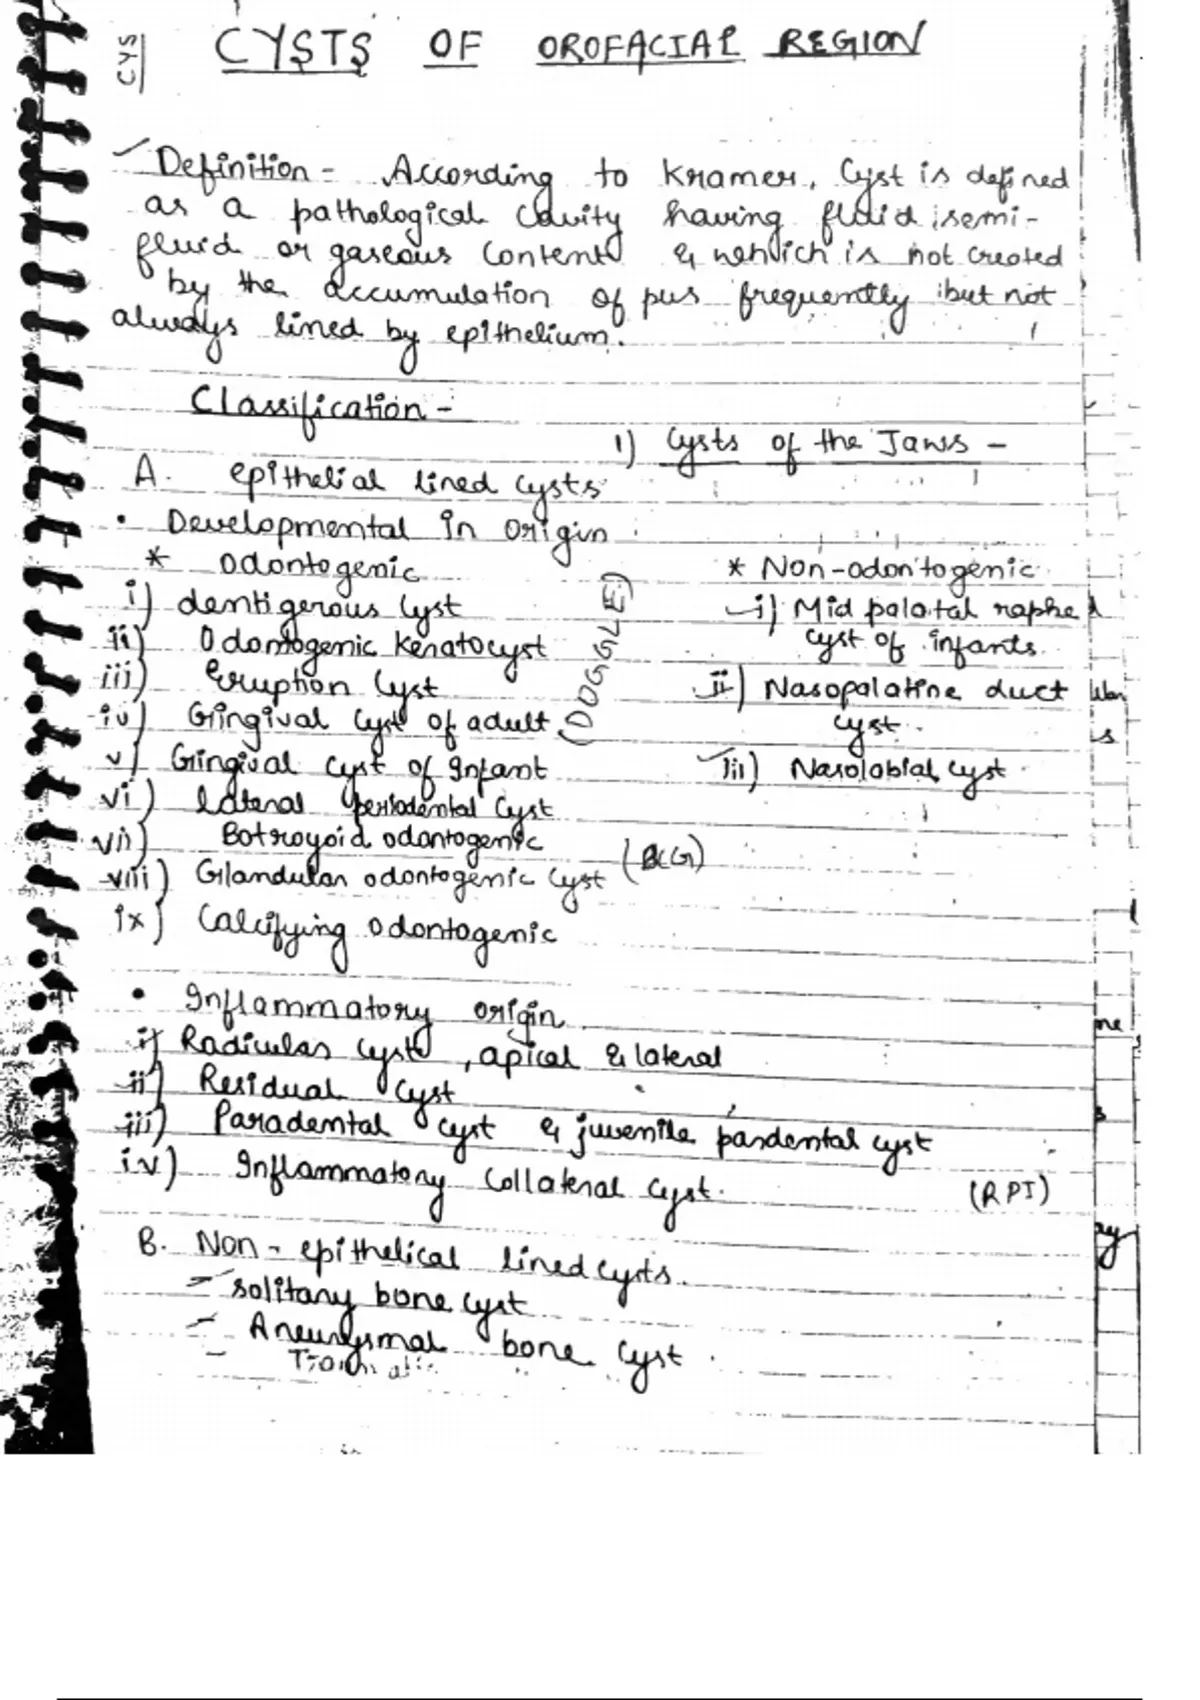 CYS
CYSTS OF OROFACIAL REGION
Definition - According to Kramer, Cyst is defined
as a pathological cavity having fluid, semi-
fluid or gaseous content & which is not created
by the accumulation of pus frequently but not
always lined by epithelium.
Classification -
1) Cysts of the Jaws -
A. epithelial lined cysts
• Developmental in origin
* Odontogenic
i) dentigerous Cyst
ii) Odontogenic Keratocyst
iii) Eruption Cyst
iv) Gingival Cyst of adult
v) Gingival cyst of Infant
vi) lateral periodental Cyst
vii) Botroyoid odontogenic
viii) Glandular odontogenic Cyst
ix) Calcifying odontogenic
(DOGGLE)
(BCG)
* Non-odontogenic
i) Mid palatal raphe
cyst of infants.
ii) Nasopalatine duct
cyst.
iii) Nasolabial cyst
• Inflammatory origin
i) Radicular Cyst, apical & lateral
ii) Residual Cyst
iii) Paradental cyst & juvenile pardental cyst
iv) Inflammatory Collateral Cyst.
(RPI)
B. Non-epithelical lined cysts.
- solitary bone cyst
- Aneurysmal bone cyst
ne
ay